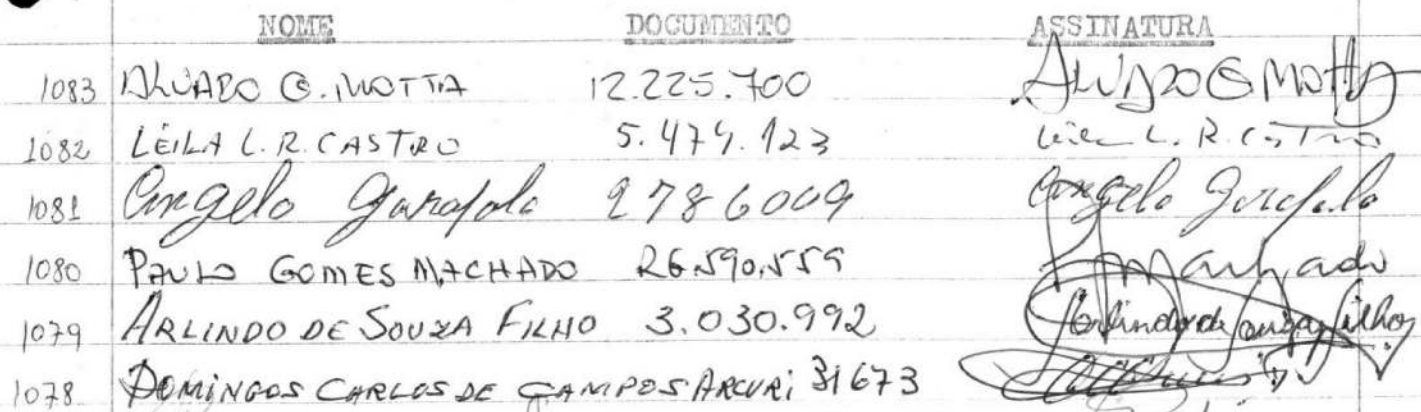 NOME DOCUMENTO ASSINATURA
1083 ALVARO G. MOTTA 12.225.700 ALVARO G MOTTA
1082 LÉILA L. R. CASTRO 5.474.123 Leila L. R. Castro
1081 Angelo Garofalo 2786009 Angelo Garofalo
1080 PAULO GOMES MACHADO 26.590.559 Machado
1079 ARLINDO DE SOUZA FILHO 3.030.992 Arlindo de Souza Filho
1078 DOMINGOS CARLOS DE CAMPOS ARCURI 31673